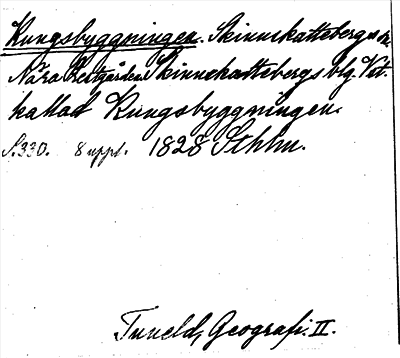 Kungsbyggningen. Skinnskattebergs sn.
Nära Prestgården Skinnskattebergs blg. Vit.
kallad Kungsbyggningen.
S. 330. 8 uppl. 1828 Sthlm.
Tuneld, Geografi. II.